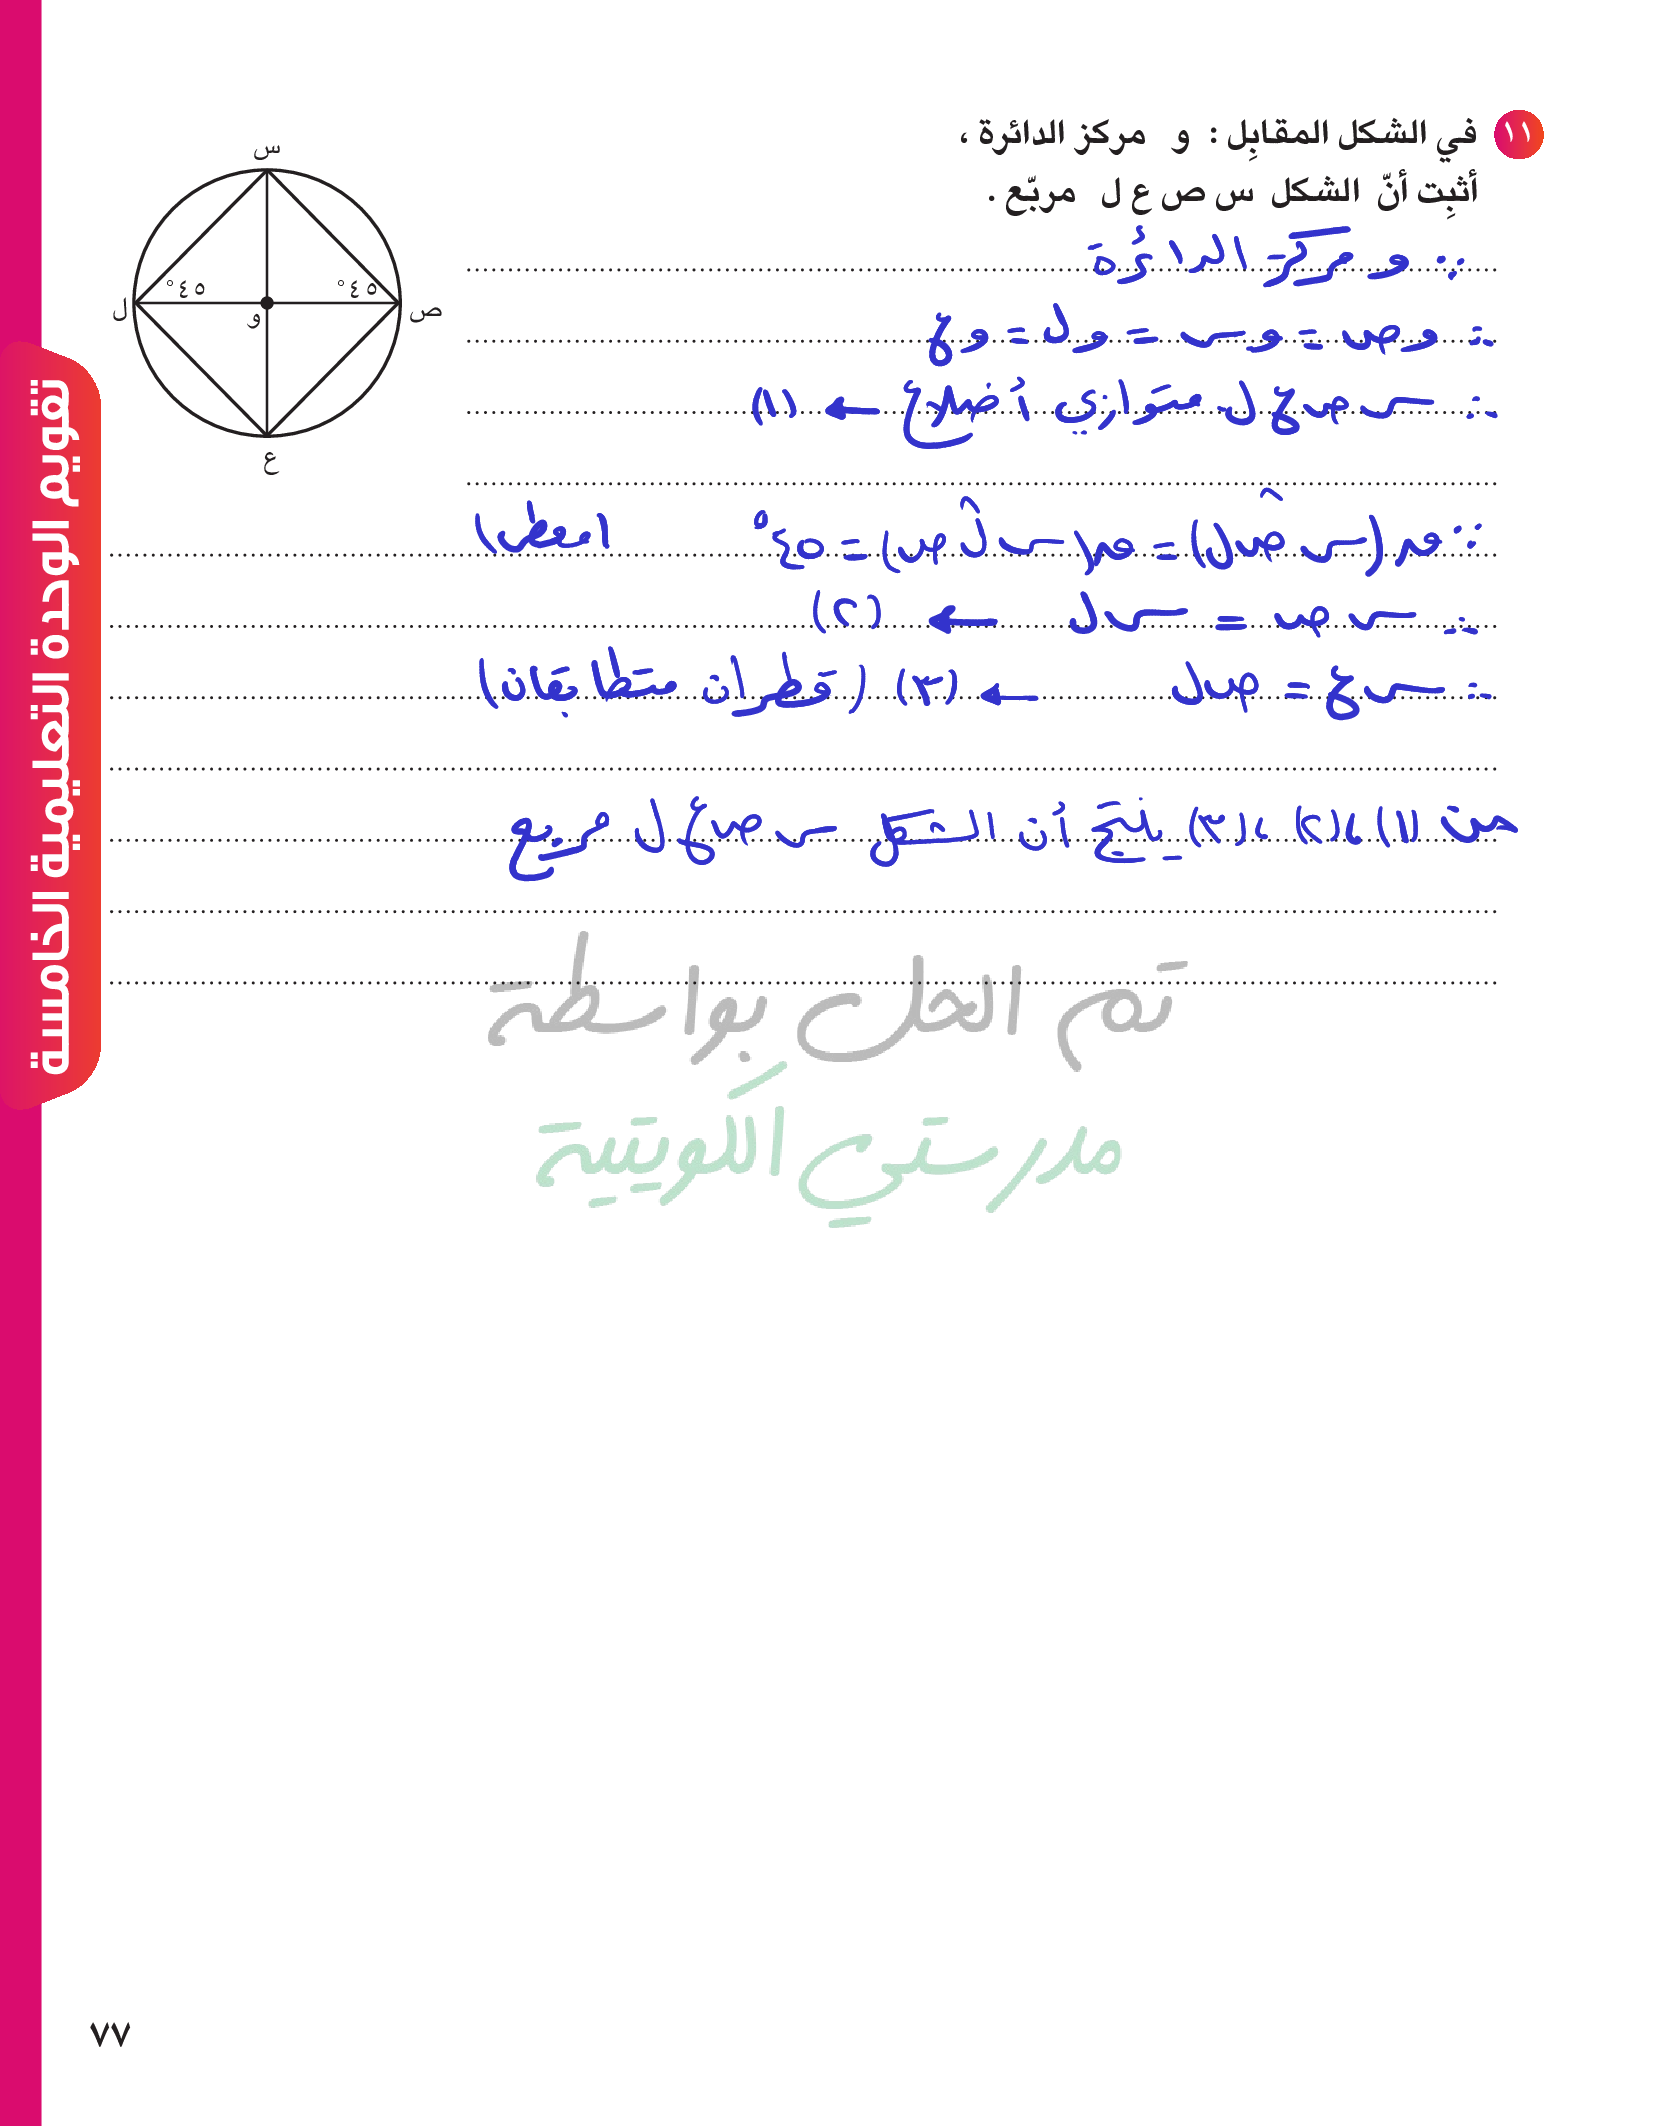 ١١ في الشكل المقابِل : و مركز الدائرة ،
أثبِت أنّ الشكل س ص ع ل مربّع .
س
٤٥° ٤٥°
ل و ص
ع
∵ و مركز الدائرة
∴ وص = وس = ول = وع
∴ س ص ع ل متوازي أضلاع ← (١)
∵ ق(س ص̂ ل) = ق(س ل̂ ص) = ٤٥° (معطى)
∴ س ص = س ل ← (٢)
∴ س ع = ص ل ← (٣) (قطران متطابقان)
من (١) ، (٢) ، (٣) ينتج أن الشكل س ص ع ل مربع
تم الحل بواسطة
مدرستي الكويتية
تقويم الوحدة التعليمية الخامسة
٧٧